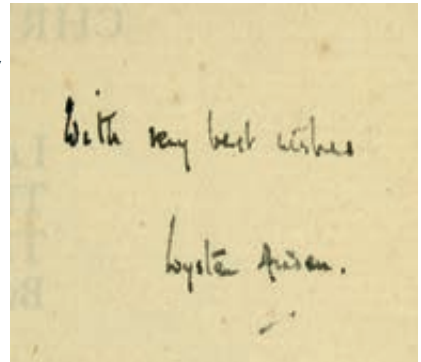 With very best wishes
Wystan Auden.